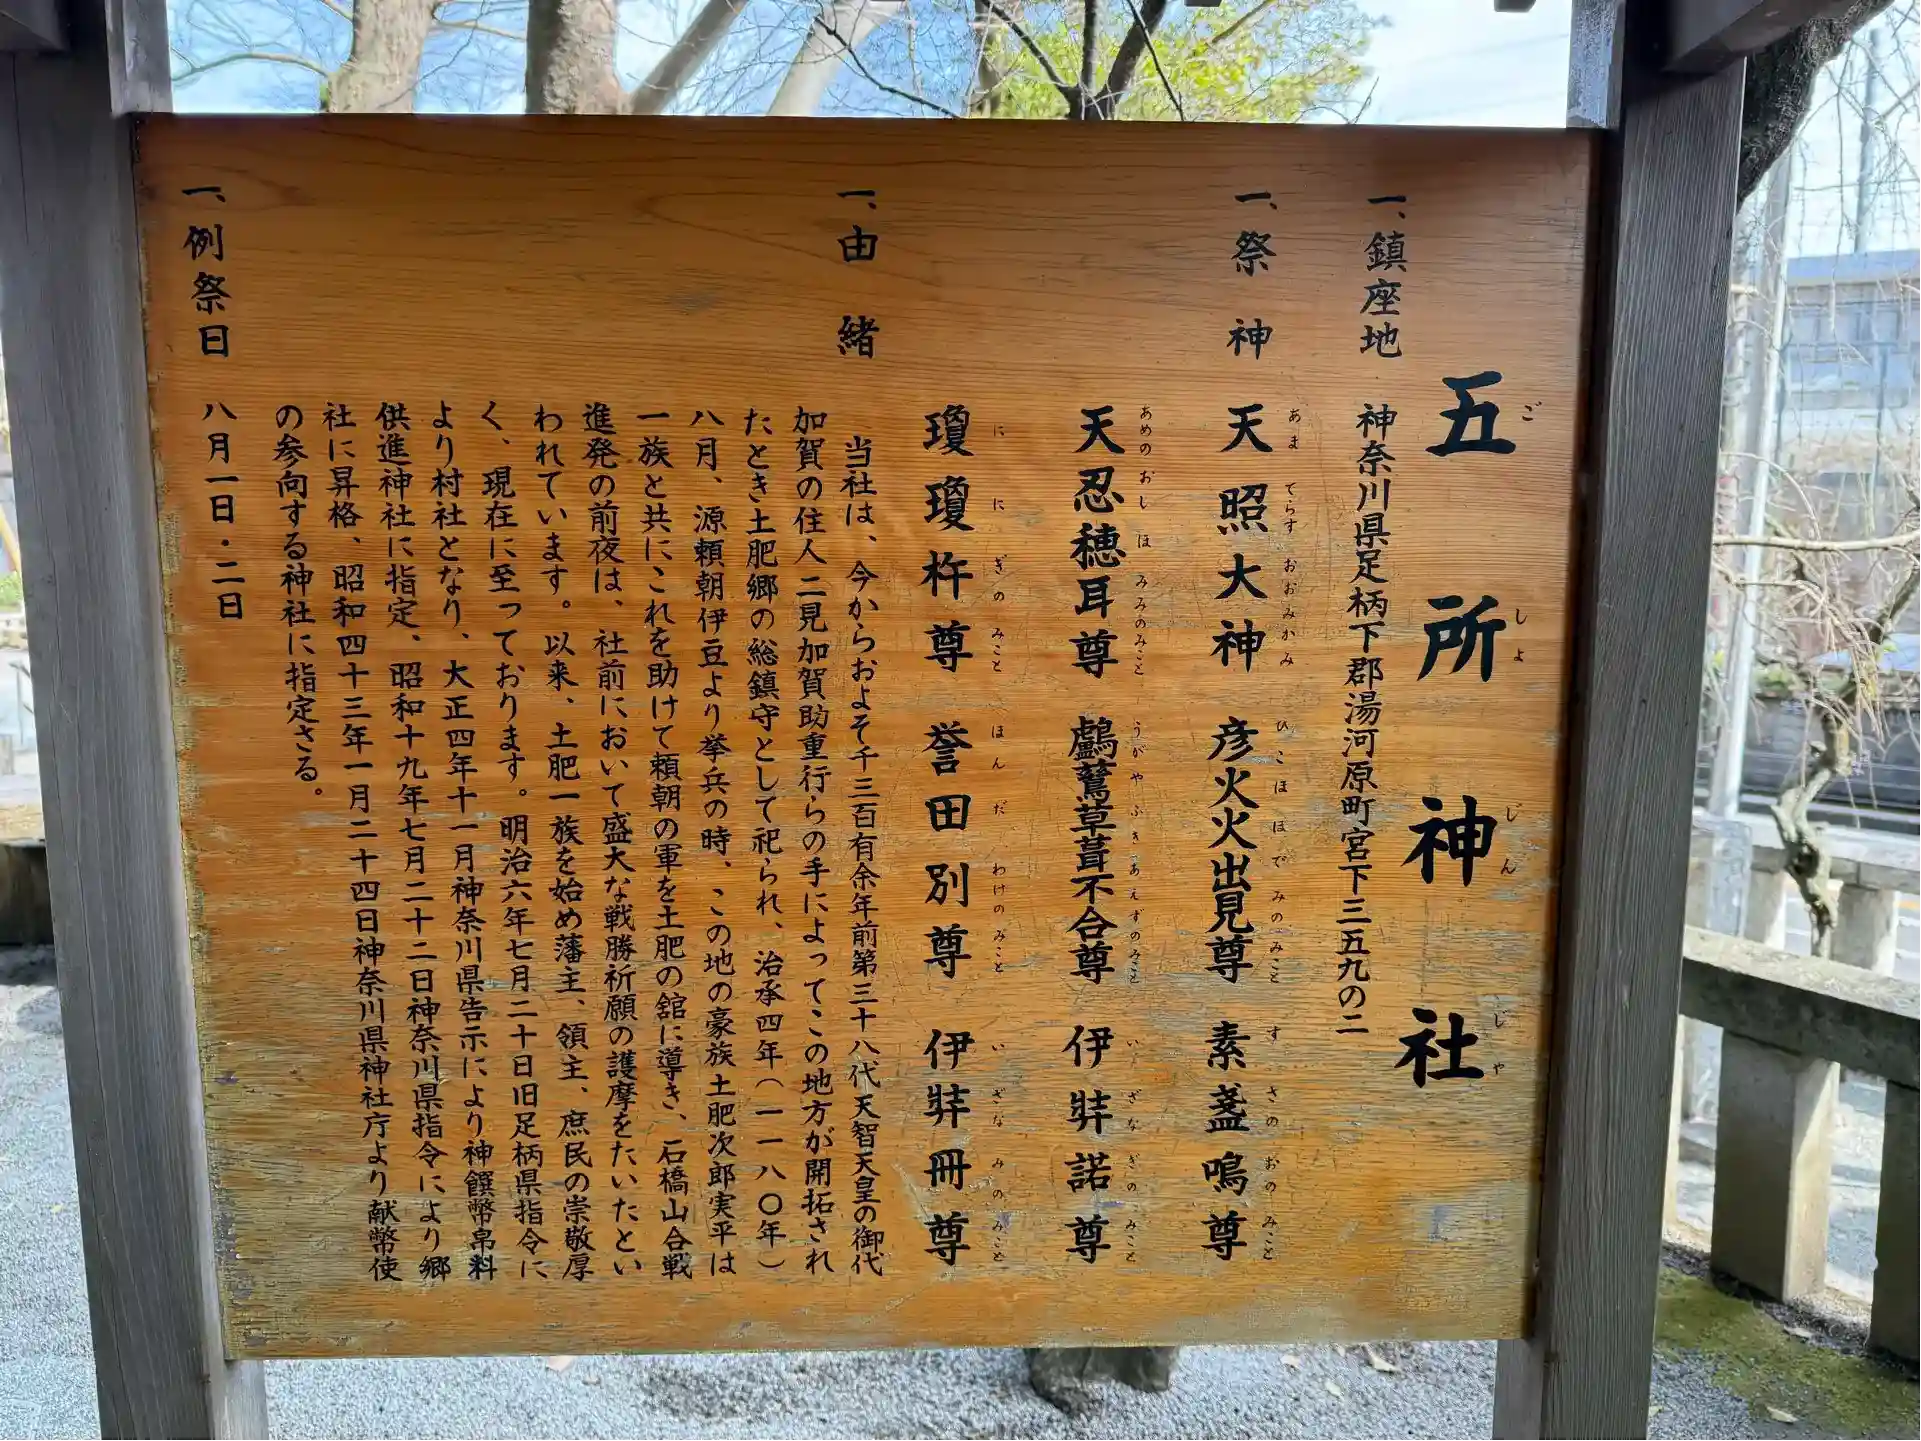 五所神社
ごしょじんじゃ
一、鎮座地 神奈川県足柄下郡湯河原町宮下三五九の二
一、祭神 天照大神 彦火火出見尊 素盞鳴尊
あまてらすおおみかみ ひこほほでみのみこと すさのおのみこと
天忍穂耳尊 鸕鶿草葺不合尊 伊弉諾尊
あめのおしほみみのみこと うがやふきあえずのみこと いざなぎのみこと
瓊瓊杵尊 誉田別尊 伊弉冊尊
ににぎのみこと ほんだわけのみこと いざなみのみこと
一、由緒 当社は、今からおよそ千三百有余年前第三十八代天智天皇の御代
加賀の住人二見加賀助重行らの手によってこの地方が開拓され
たとき土肥郷の総鎮守として祀られ、治承四年(一一八〇年)
八月、源頼朝伊豆より挙兵の時、この地の豪族土肥次郎実平は
一族と共にこれを助けて頼朝の軍を土肥の舘に導き、石橋山合戦
進発の前夜は、社前において盛大な戦勝祈願の護摩をたいたとい
われています。以来、土肥一族を始め藩主、領主、庶民の崇敬厚
く、現在に至っております。明治六年七月二十日旧足柄県指令に
より村社となり、大正四年十一月神奈川県告示により神饌幣帛料
供進神社に指定、昭和十九年七月二十二日神奈川県指令により郷
社に昇格、昭和四十三年一月二十四日神奈川県神社庁より献幣使
の参向する神社に指定さる。
一、例祭日 八月一日・二日